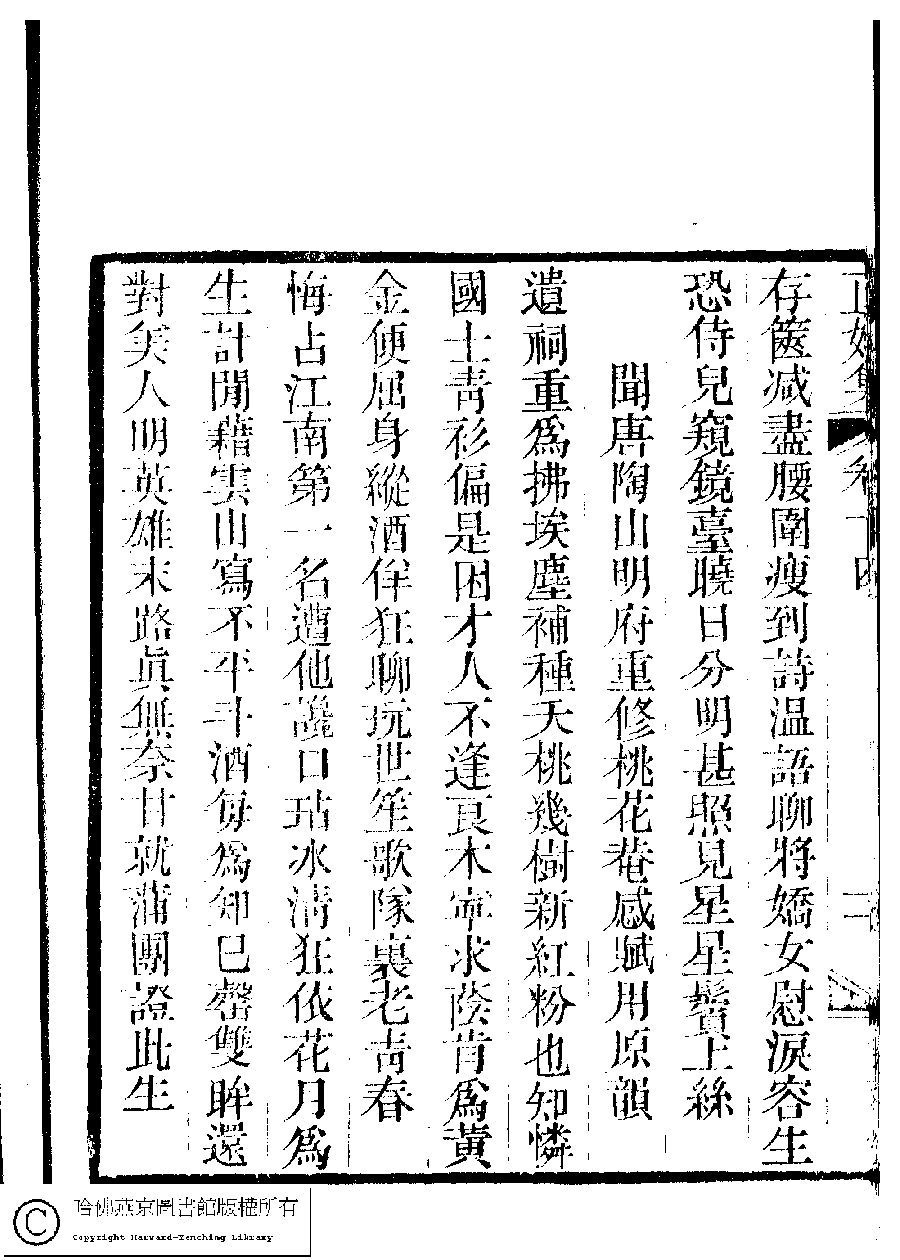 存篋减盡腰圍瘦到詩温語聊將嬌女慰淚容生
恐侍兒窺鏡臺曉日分明甚照見星星鬢上絲
聞唐陶山明府重修桃花菴感賦用原韻
遺祠重爲拂埃塵補種夭桃幾樹新紅粉也知憐
國士靑衫偏是困才人不逢良木寧求蔭肯爲黄
金便屈身縱酒佯狂聊玩世笙歌隊裏老青春
悔占江南第一名遭他讒口玷冰清狂依花月爲
生計閒藉雲山寫不平斗酒每爲知巳罄雙眸還
對美人明英雄末路眞無奈甘就蒲團證此生
哈佛燕京圖書館版權所有
Copyright Harvard-Yenching Library